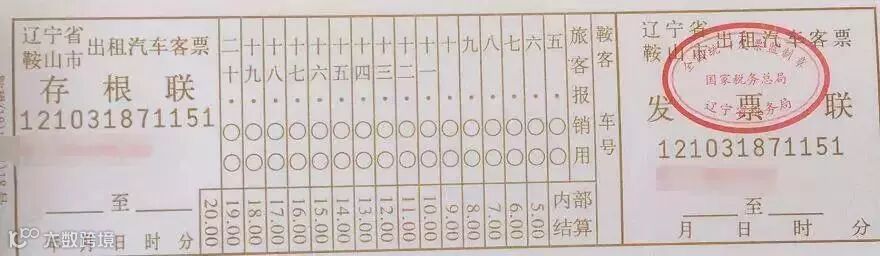 辽宁省
鞍山市
出租汽车客票
存根联
121031871151
至
年 月 日 时 分
二十·〇〇
十九·〇〇
十八·〇〇
十七·〇〇
十六·〇〇
十五·〇〇
十四·〇〇
十三·〇〇
十二·〇〇
十一·〇〇
十·〇〇
九·〇〇
八·〇〇
七·〇〇
六·〇〇
五·〇〇
旅客报销用
20.00
19.00
18.00
17.00
16.00
15.00
14.00
13.00
12.00
11.00
10.00
9.00
8.00
7.00
6.00
5.00
内部
结算
鞍客
车号
辽宁省
鞍山市
出租汽车客票
国家税务总局
发票联
121031871151
至
月 日 时 分
大数跨境